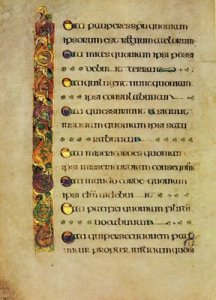 Beati pauperes spu quoniam
ipsorum est regnum caelorum
Beati mites quoniam ipsi posi
debunt terram
Beati qui lugent nunc quoniam
ipsi consulabuntur
Beati qui essuriunt et sitiunt
iustitiam quoniam ipsi satu
rabuntur
Beati misericordes quoniam
ipsi misericordiam
Beati mundo corde quoniam
ipsi dm videbunt
Beati pacifici quoniam filii
vocabuntur
Beati qui persecutionem pati
untur propter iustitiam quoniam